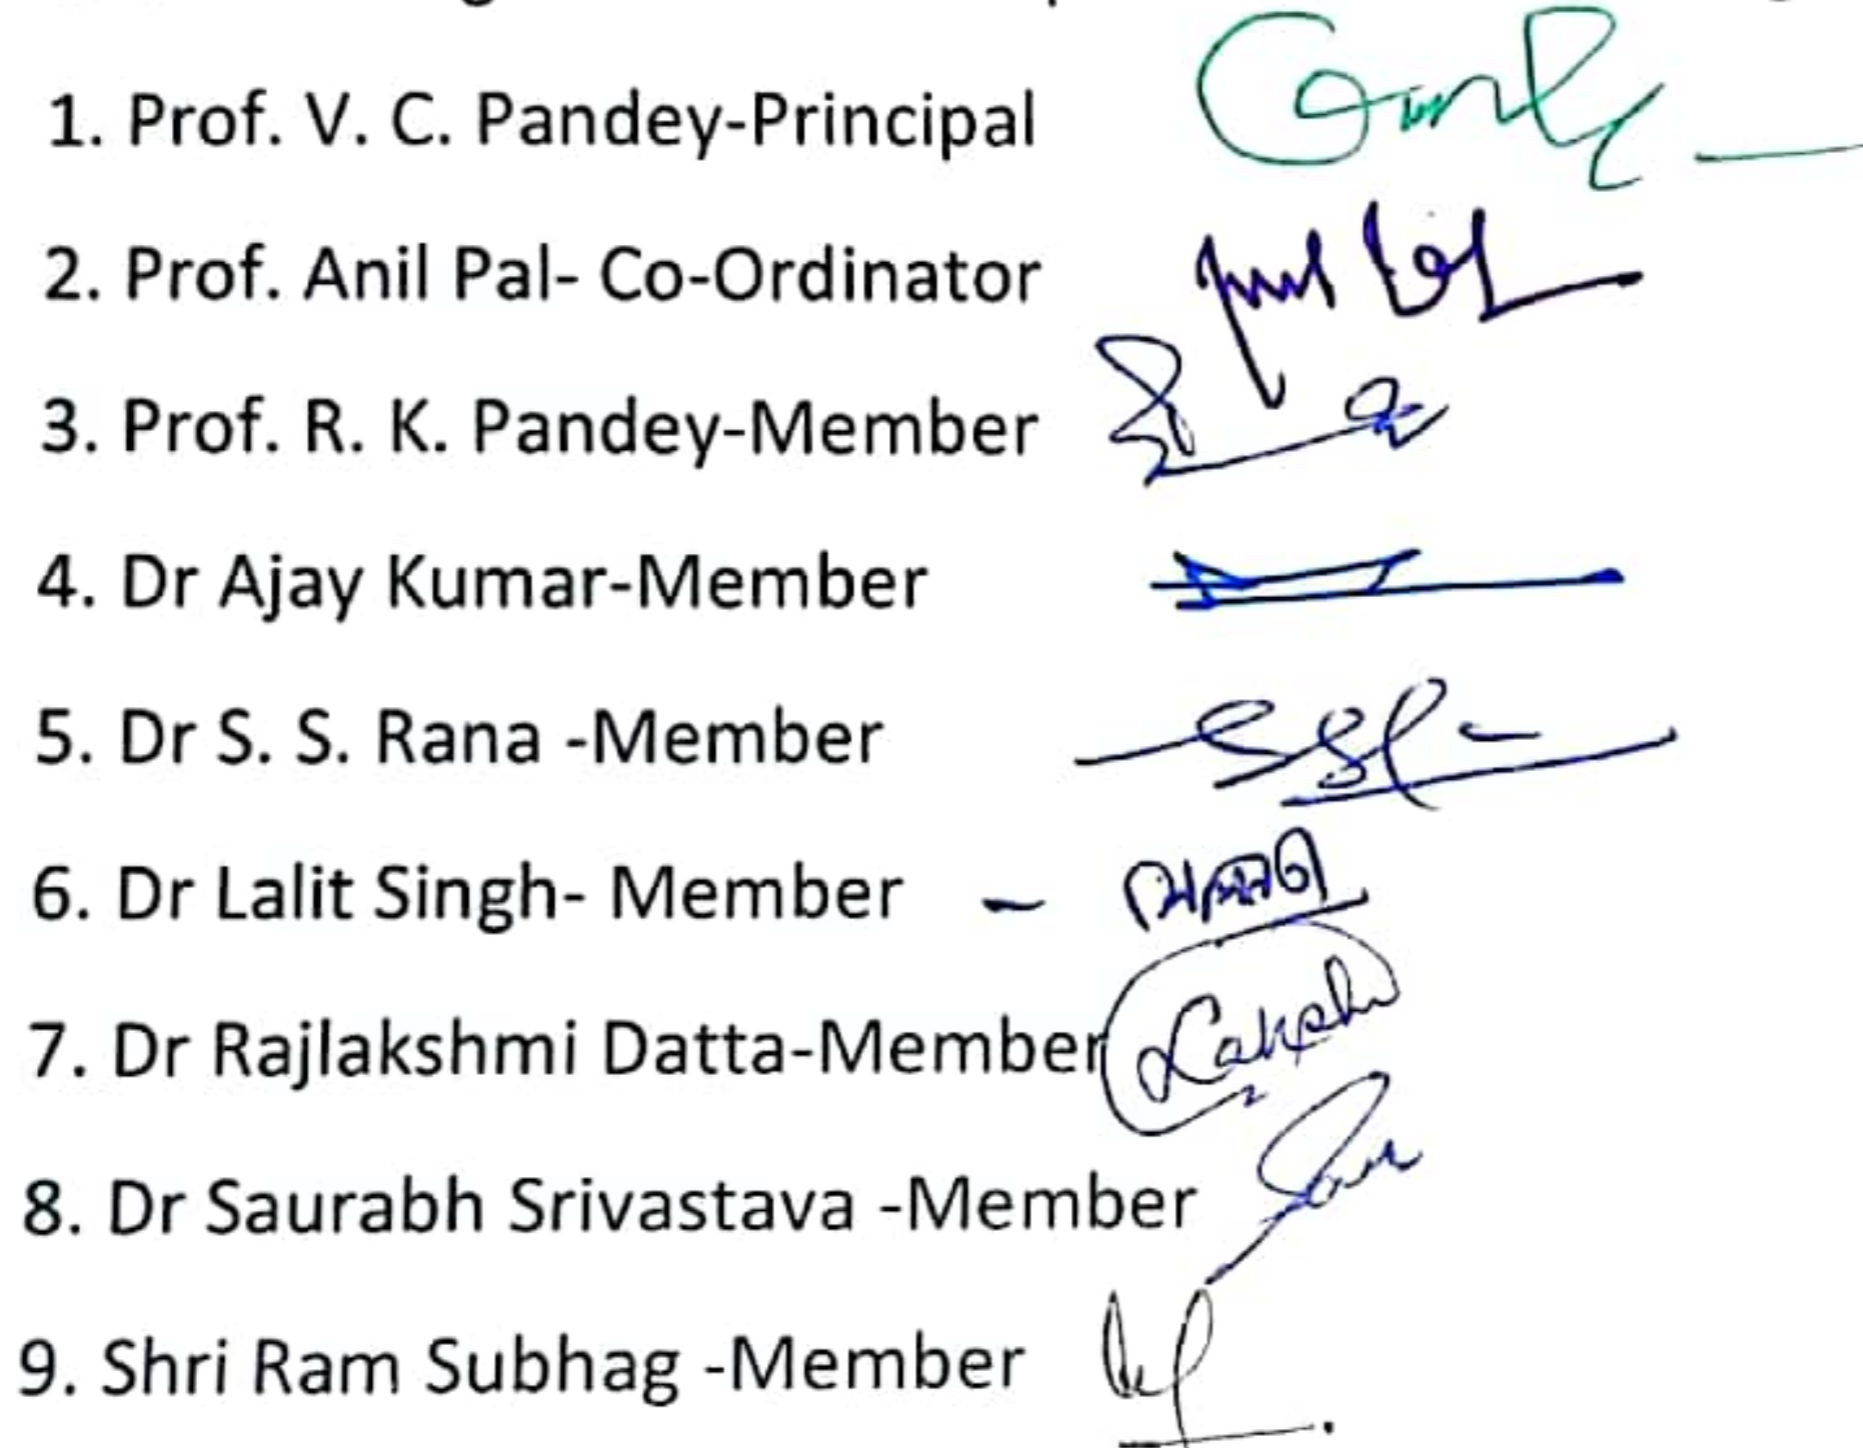 1. Prof. V. C. Pandey-Principal
2. Prof. Anil Pal- Co-Ordinator
3. Prof. R. K. Pandey-Member
4. Dr Ajay Kumar-Member
5. Dr S. S. Rana -Member
6. Dr Lalit Singh- Member -
7. Dr Rajlakshmi Datta-Member
8. Dr Saurabh Srivastava -Member
9. Shri Ram Subhag -Member